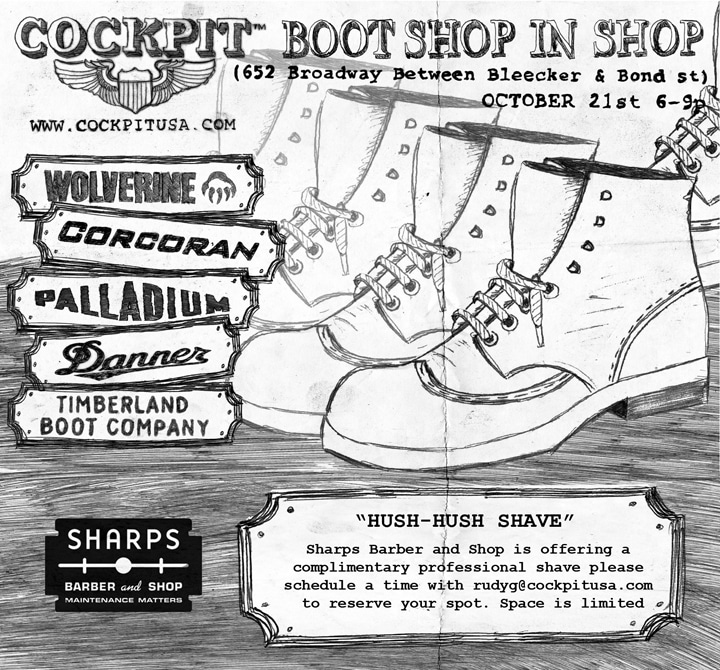 COCKPIT™ BOOT SHOP IN SHOP
(652 Broadway Between Bleecker & Bond st)
OCTOBER 21st 6-9p
WWW.COCKPITUSA.COM
WOLVERINE
CORCORAN
PALLADIUM
Danner
TIMBERLAND
BOOT COMPANY
SHARPS
BARBER and SHOP
MAINTENANCE MATTERS
“HUSH-HUSH SHAVE”
Sharps Barber and Shop is offering a
complimentary professional shave please
schedule a time with rudyg@cockpitusa.com
to reserve your spot. Space is limited